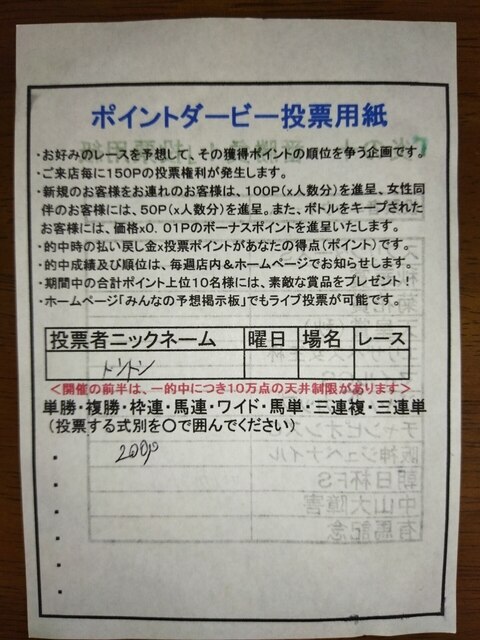 ポイントダービー投票用紙
・お好みのレースを予想して、その獲得ポイントの順位を争う企画です。
・ご来店毎に150Pの投票権利が発生します。
・新規のお客様をお連れのお客様は、100P(x人数分)を進呈、女性同
伴のお客様には、50P(x人数分)を進呈。また、ボトルをキープされた
お客様には、価格x0.01Pのボーナスポイントを進呈いたします。
・的中時の払い戻し金x投票ポイントがあなたの得点(ポイント)です。
・的中成績及び順位は、毎週店内&ホームページでお知らせします。
・期間中の合計ポイント上位10名様には、素敵な賞品をプレゼント!
・ホームページ「みんなの予想掲示板」でもライブ投票が可能です。
投票者ニックネーム 曜日 場名 レース
トントン
<開催の前半は、一的中につき10万点の天井制限があります>
単勝・複勝・枠連・馬連・ワイド・馬単・三連複・三連単
(投票する式別を〇で囲んでください)
200p
チャンピオン
阪神ジュベナイル
朝日杯FS
中山大障害
有馬記念